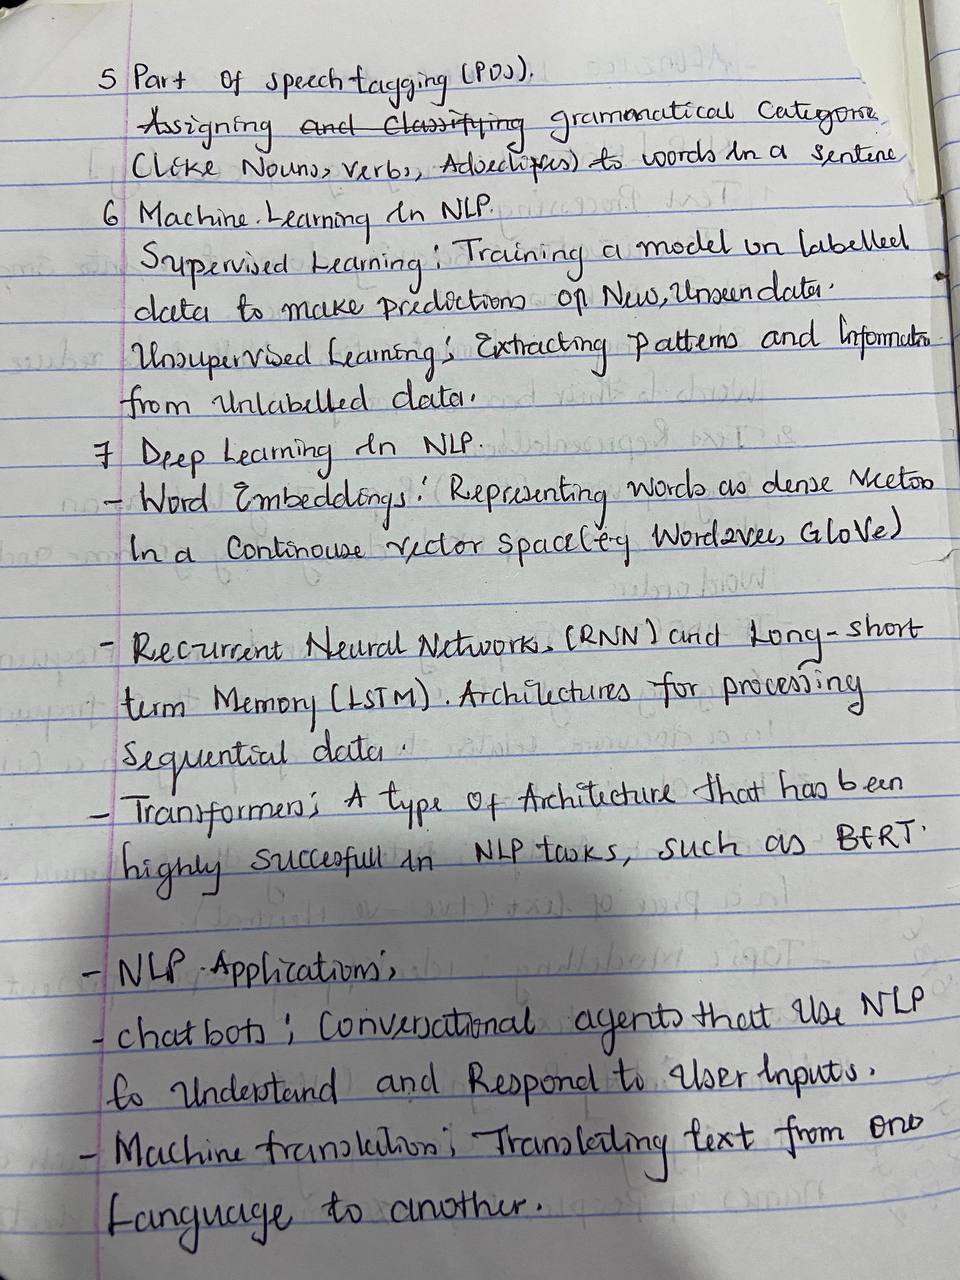 5 Part of speech tagging (POS).
Assigning and Classifying grammatical Categorie
(like Nouns, verbs, Adjectives) to words In a sentence
6 Machine Learning In NLP.
Supervised Learning; Training a model on labelled
data to make predictions on New, Unseen data.
Unsupervised Learning; Extracting patterns and Information
from Unlabelled data.
7 Deep Learning In NLP.
- Word Embeddings: Representing words as dense Vectors
In a Continouse vector space (eg Word2vec, GloVe)
- Recurrent Neural Networks (RNN) and Long-short
term Memory (LSTM). Architectures for processing
sequential data.
- Transformers; A type of Architecture that has been
highly succesfull In NLP tasks, such as BERT.
- NLP Applications;
- chatbots; Conversational agents that Use NLP
to Understand and Respond to User Inputs.
- Machine translation; Translating text from one
Language to another.